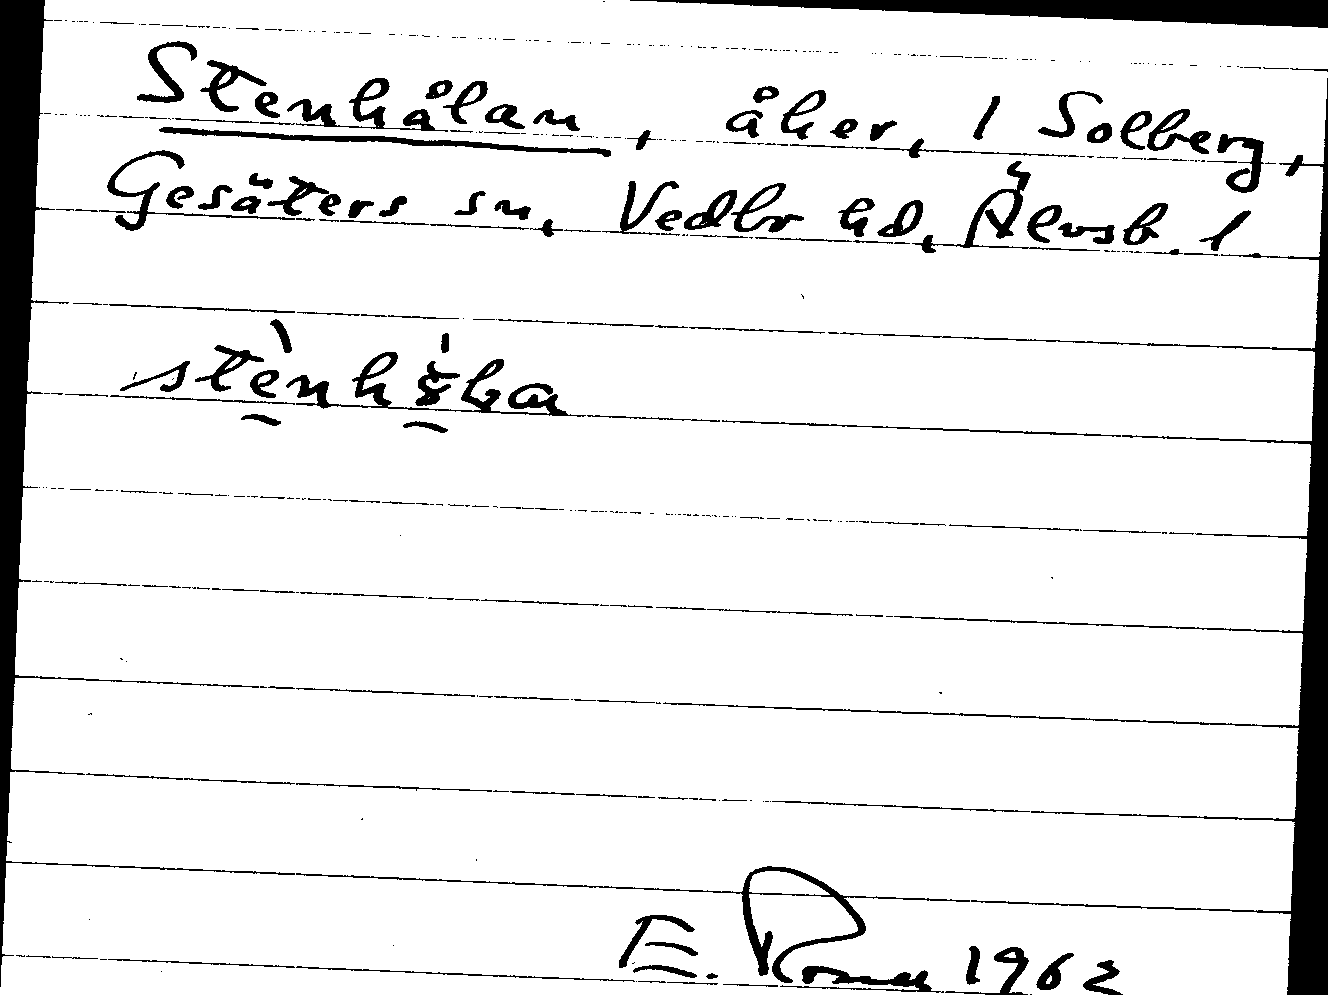 Stenhålan, åker, 1 Solberg,
Gesäters sn, Vedbo hd, Älvsb. l.
E. Roman 1962